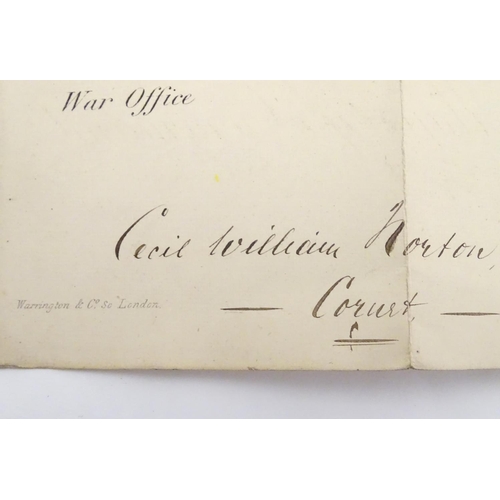 War Office
Cecil William Norton,
— Cornet, —
Warrington & Co. So London.